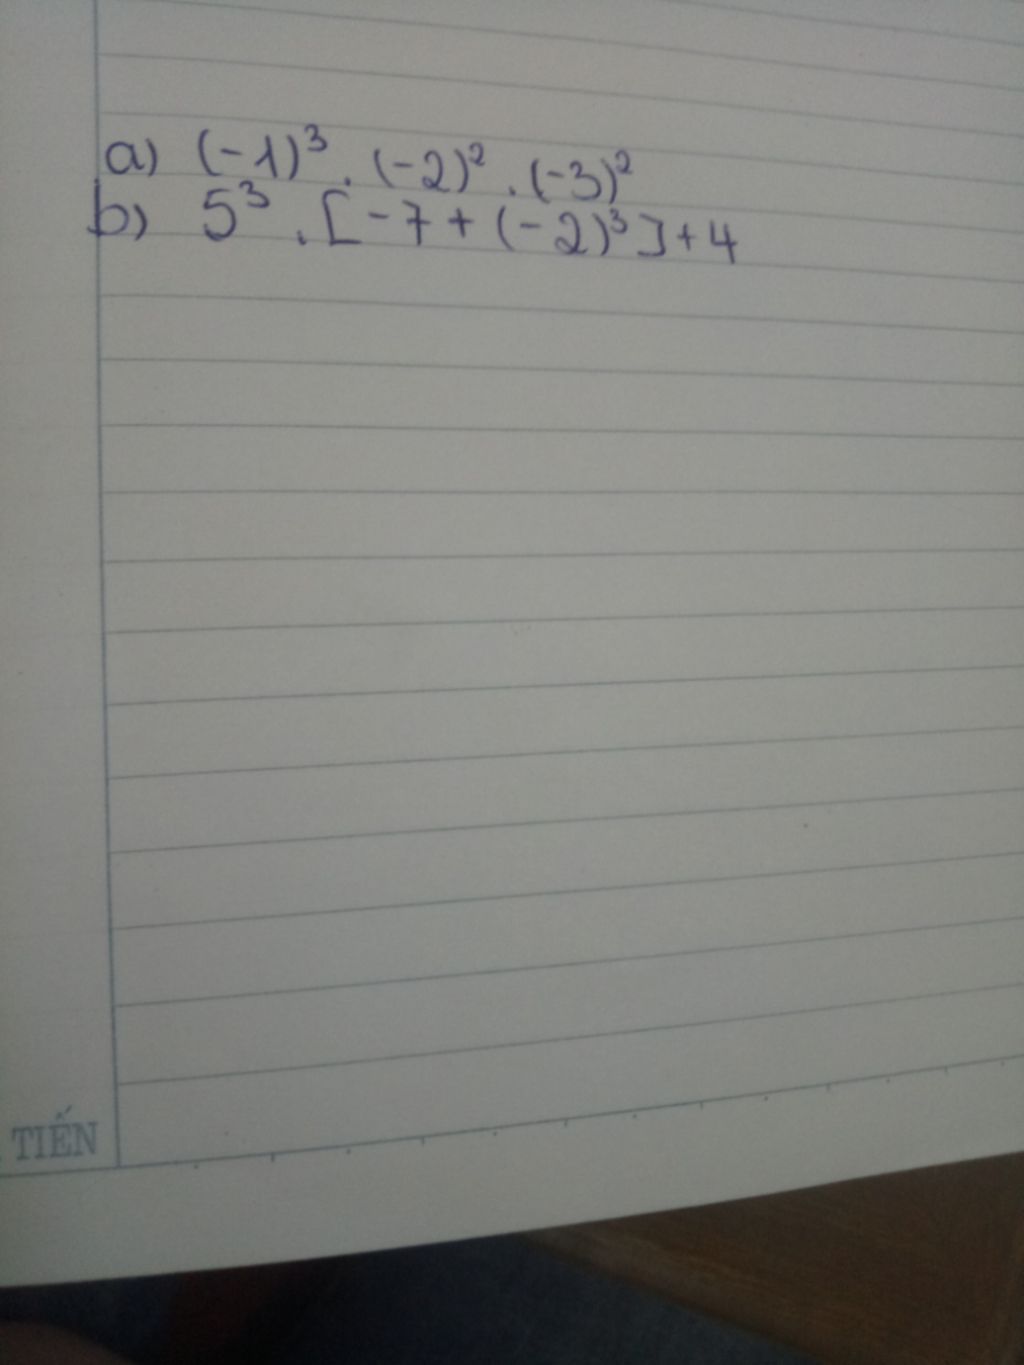 a) (-1)³ . (-2)² . (-3)²
b) 5³ . [-7 + (-2)³] + 4
TIẾN